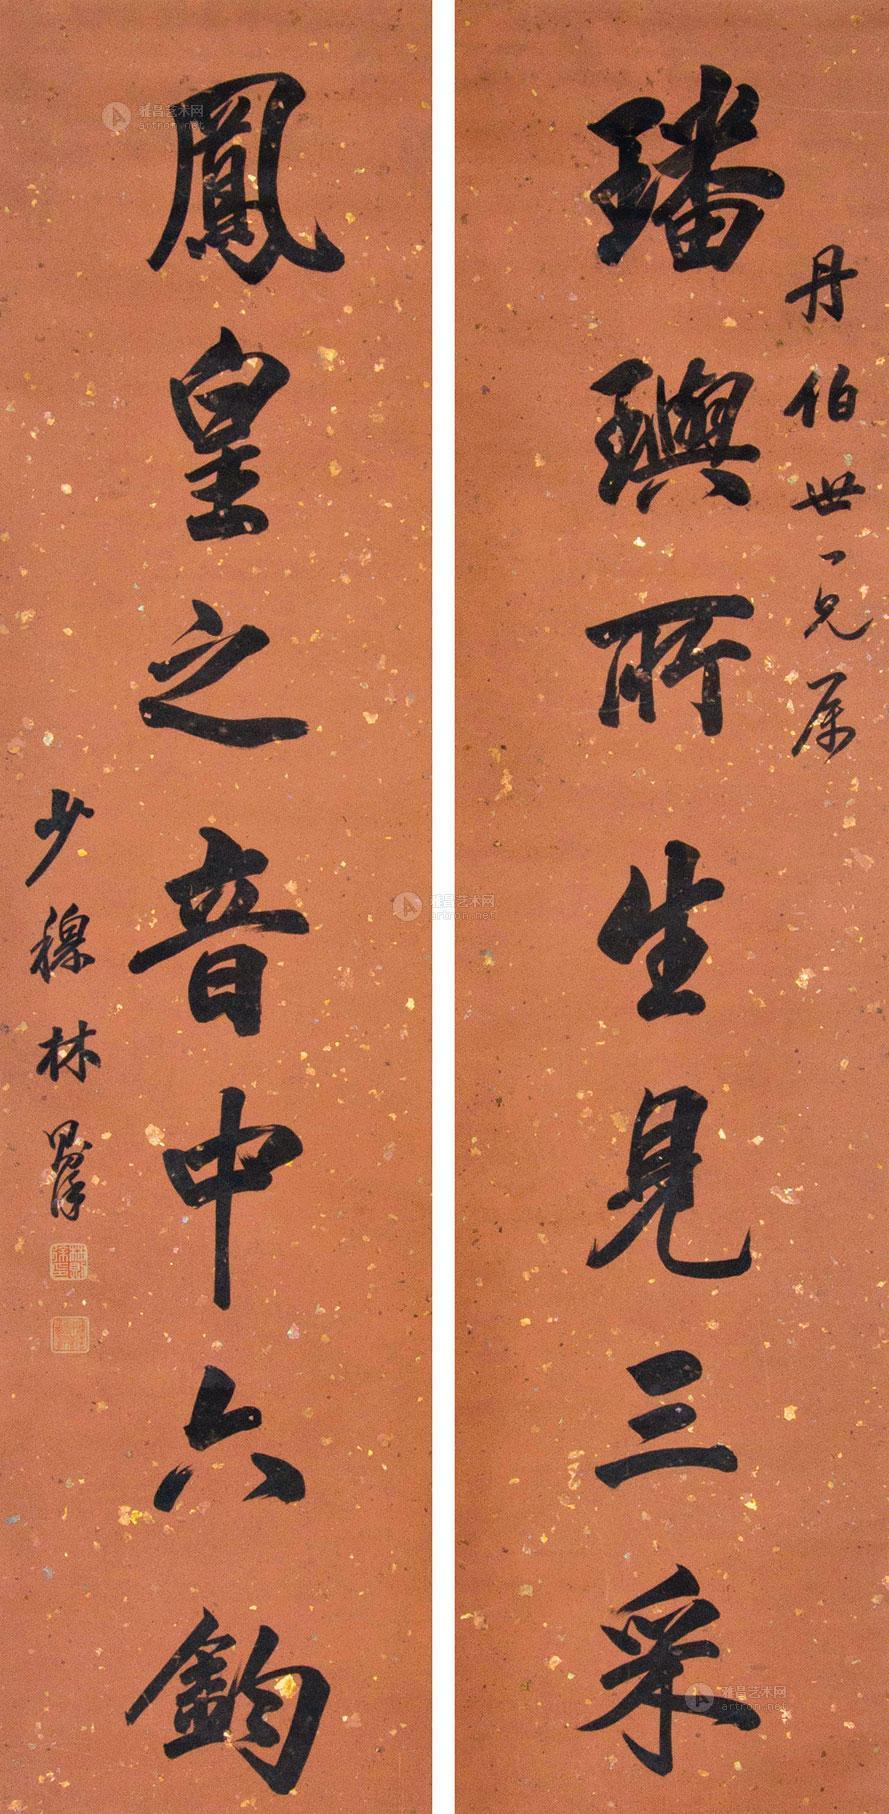 丹伯世一兄属
璠玙所生見三采
鳳皇之音中六鈞
少穆林則徐
雅昌艺术网
artron.net
雅昌艺术网
artron.net
雅昌艺术网
artron.net